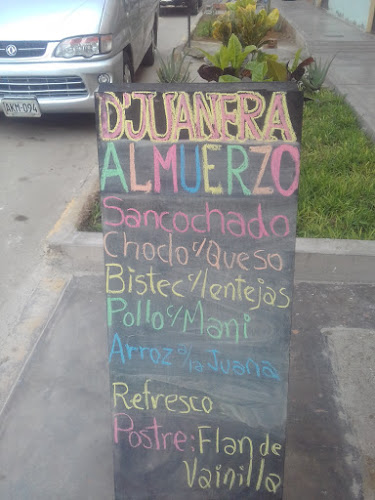 AKM-094
D'JUANERA
ALMUERZO
Sancochado
Choclo c/Queso
Bistec c/lentejas
Pollo c/Mani
Arroz a/la Juana
Refresco
Postre: Flan de
Vainilla